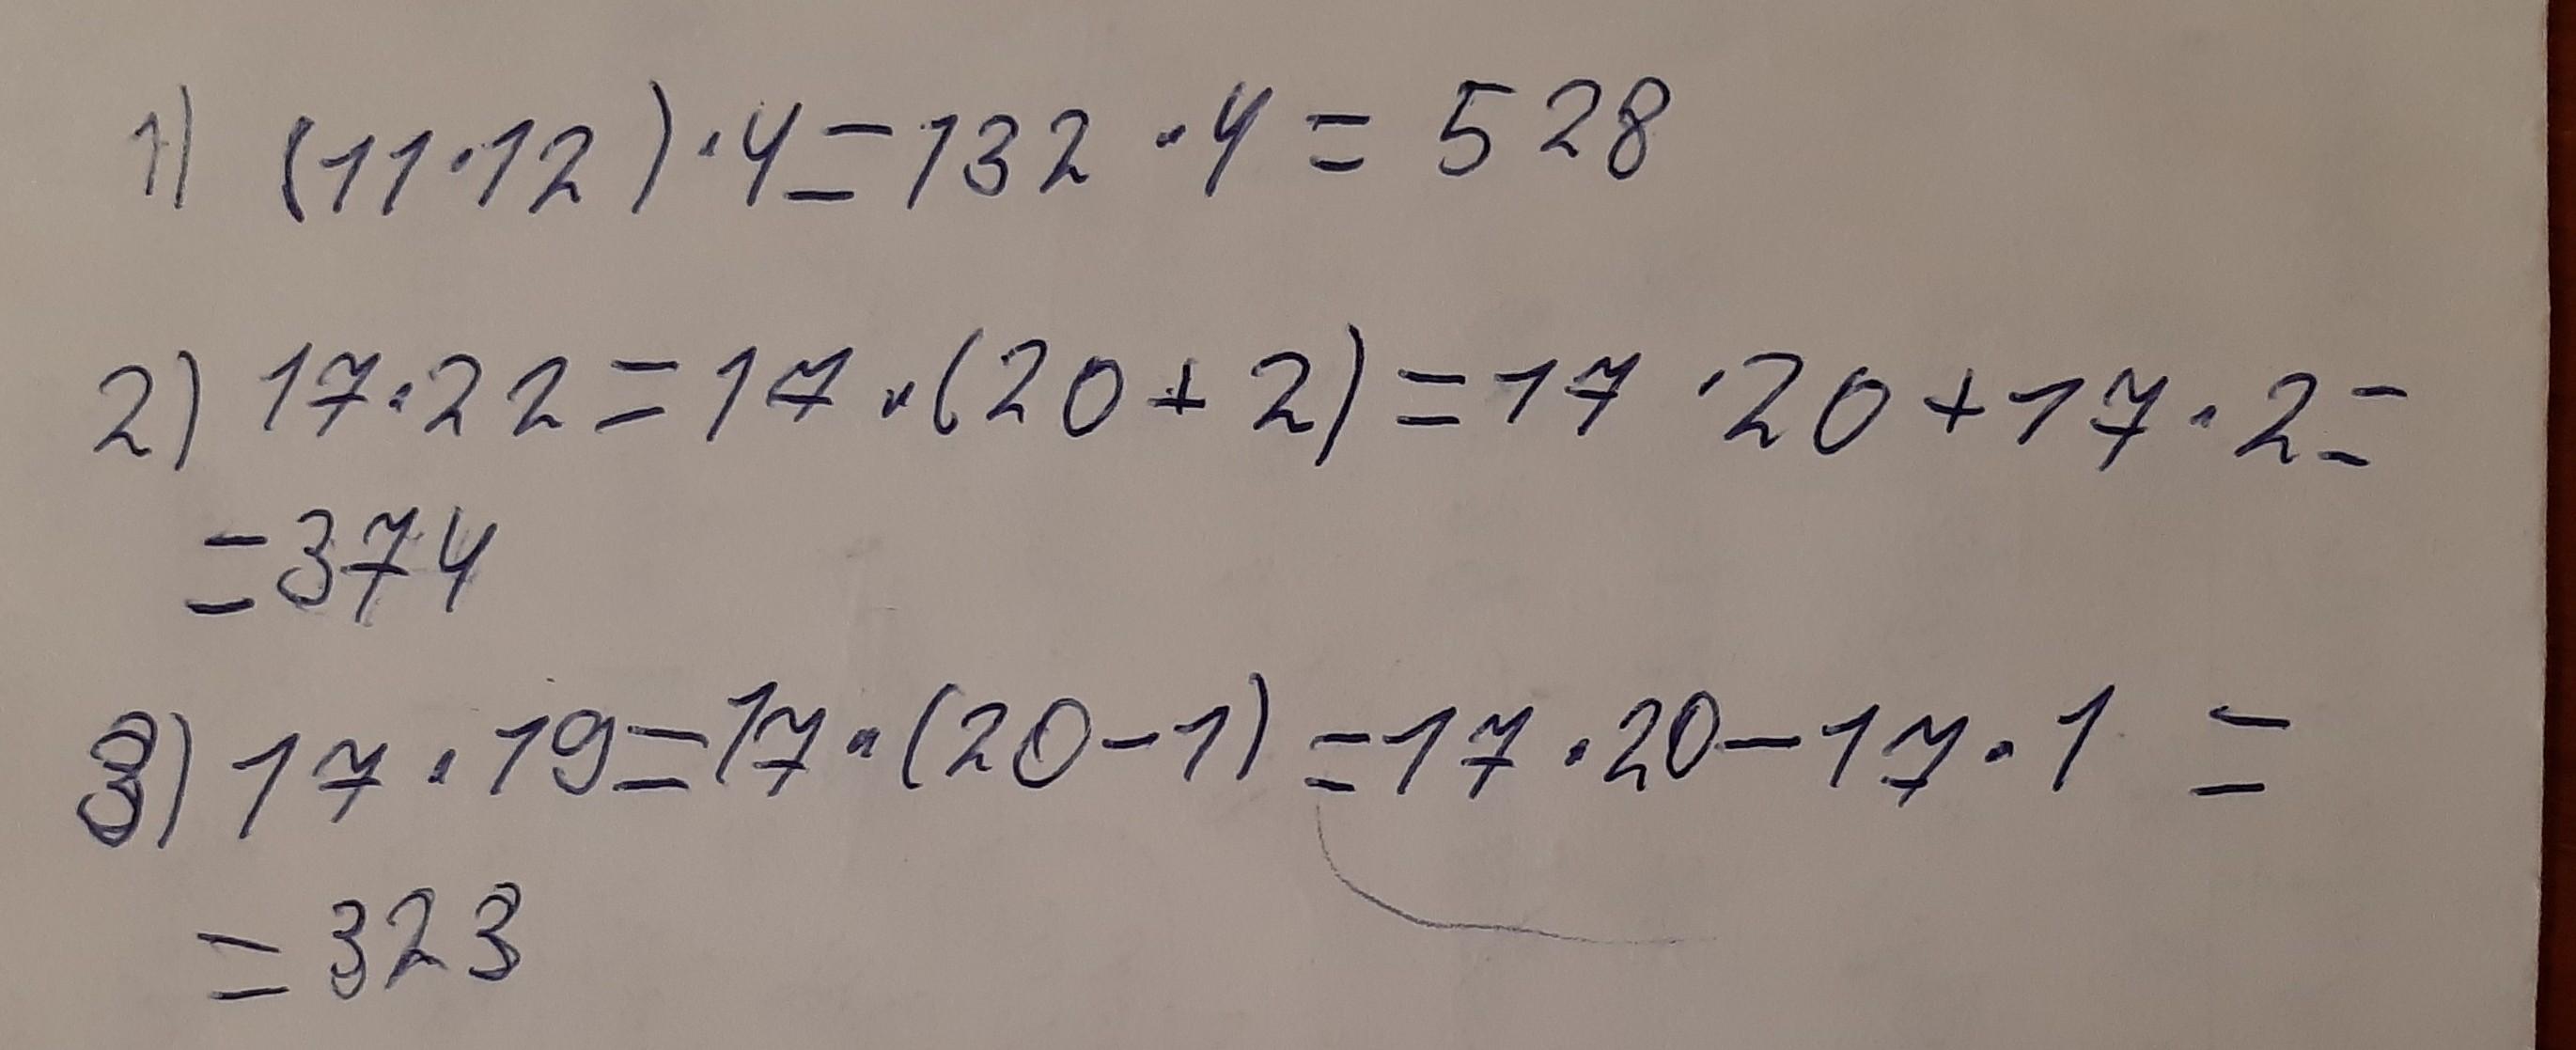 1) (11·12)·4=132·4=528
2) 17·22=17·(20+2)=17·20+17·2=
=374
3) 17·19=17·(20-1)=17·20-17·1=
=323